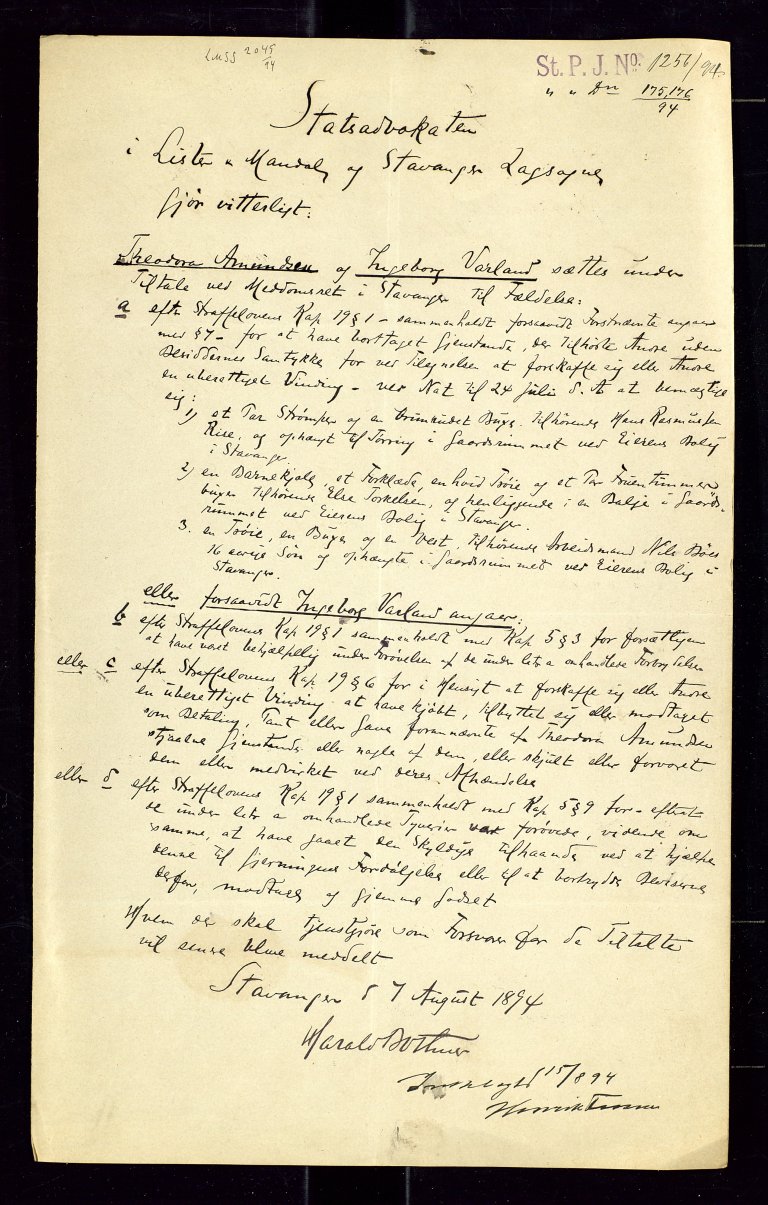 LMSS 2049/94
St. P. J. No. 1256/94.
" " Dn 175,176/94
Statsadvokaten
i Lister & Mandals og Stavanger Lagsogne
Gjør vitterligt:
Theodora Amundsen og Ingeborg Varland sættes under
Tiltale ved Meddomsret i Stavanger til Fældelse:
a efter Straffelovens Kap 19 § 1 – sammenholdt forsaavidt Førstnævnte angaar
med § 7 – for at have borttaget Gjenstande, der tilhørte Andre uden
Besiddernes Samtykke for ved Tilegnelsen at forskaffe sig eller Andre
en uberettiget Vinding – ved Nat til 24 Juli d. A. at bemægtige
sig:
1) et Par Strømper og en Buxe tilhørende Hans Rasmussen
Rise, og ophængt til Tørring i Gaardsrummet ved Eierens Bolig
i Stavanger.
2) en Barnekjole, et Forklæde, en hvid Trøie og et Par Fruentimmer-
buxer tilhørende Else Torkelsen, og henliggende i en Balje i Gaards-
rummet ved Eierens Bolig i Stavanger.
3. en Trøie, en Buxe og en Vest, tilhørende Arbeidsmand Nils Bøes
16 aarige Søn og ophængte i Gaardsrummet ved Eierens Bolig i
Stavanger.
eller forsaavidt Ingeborg Varland angaar:
b efter Straffelovens Kap 19 § 1 sammenholdt med Kap 5 § 3 for forsætligen
at have været behjælpelig under Forøvelsen af de under litra a omhandlede Forbrydelser
eller c efter Straffelovens Kap. 19 § 6 for i Hensigt at forskaffe sig eller Andre
en uberettiget Vinding at have kjøbt, tilbyttet sig eller modtaget
som Betaling, Pant eller Gave fornævnte af Theodora Amundsen
stjaalne Gjenstande eller nogle af dem, eller skjult eller forvaret
dem eller medvirket ved deres Afhændelse
eller d efter Straffelovens Kap 19 § 1 sammenholdt med Kap 5 § 9 for – efterat
de under litr a omhandlede Tyverier var forøvede, vidende om
samme, at have gaaet den Skyldige tilhaande ved at hjælpe
denne til Gjerningens Fordølgelse eller til at bortrydde Beviserne
derfor, modtaget og gjemme Godset
Hvem der skal tjenstgjøre som Forsvarer for de Tiltalte
vil senere blive meddelt
Stavanger d 7 August 1894
Harald Bothner
15/8 94